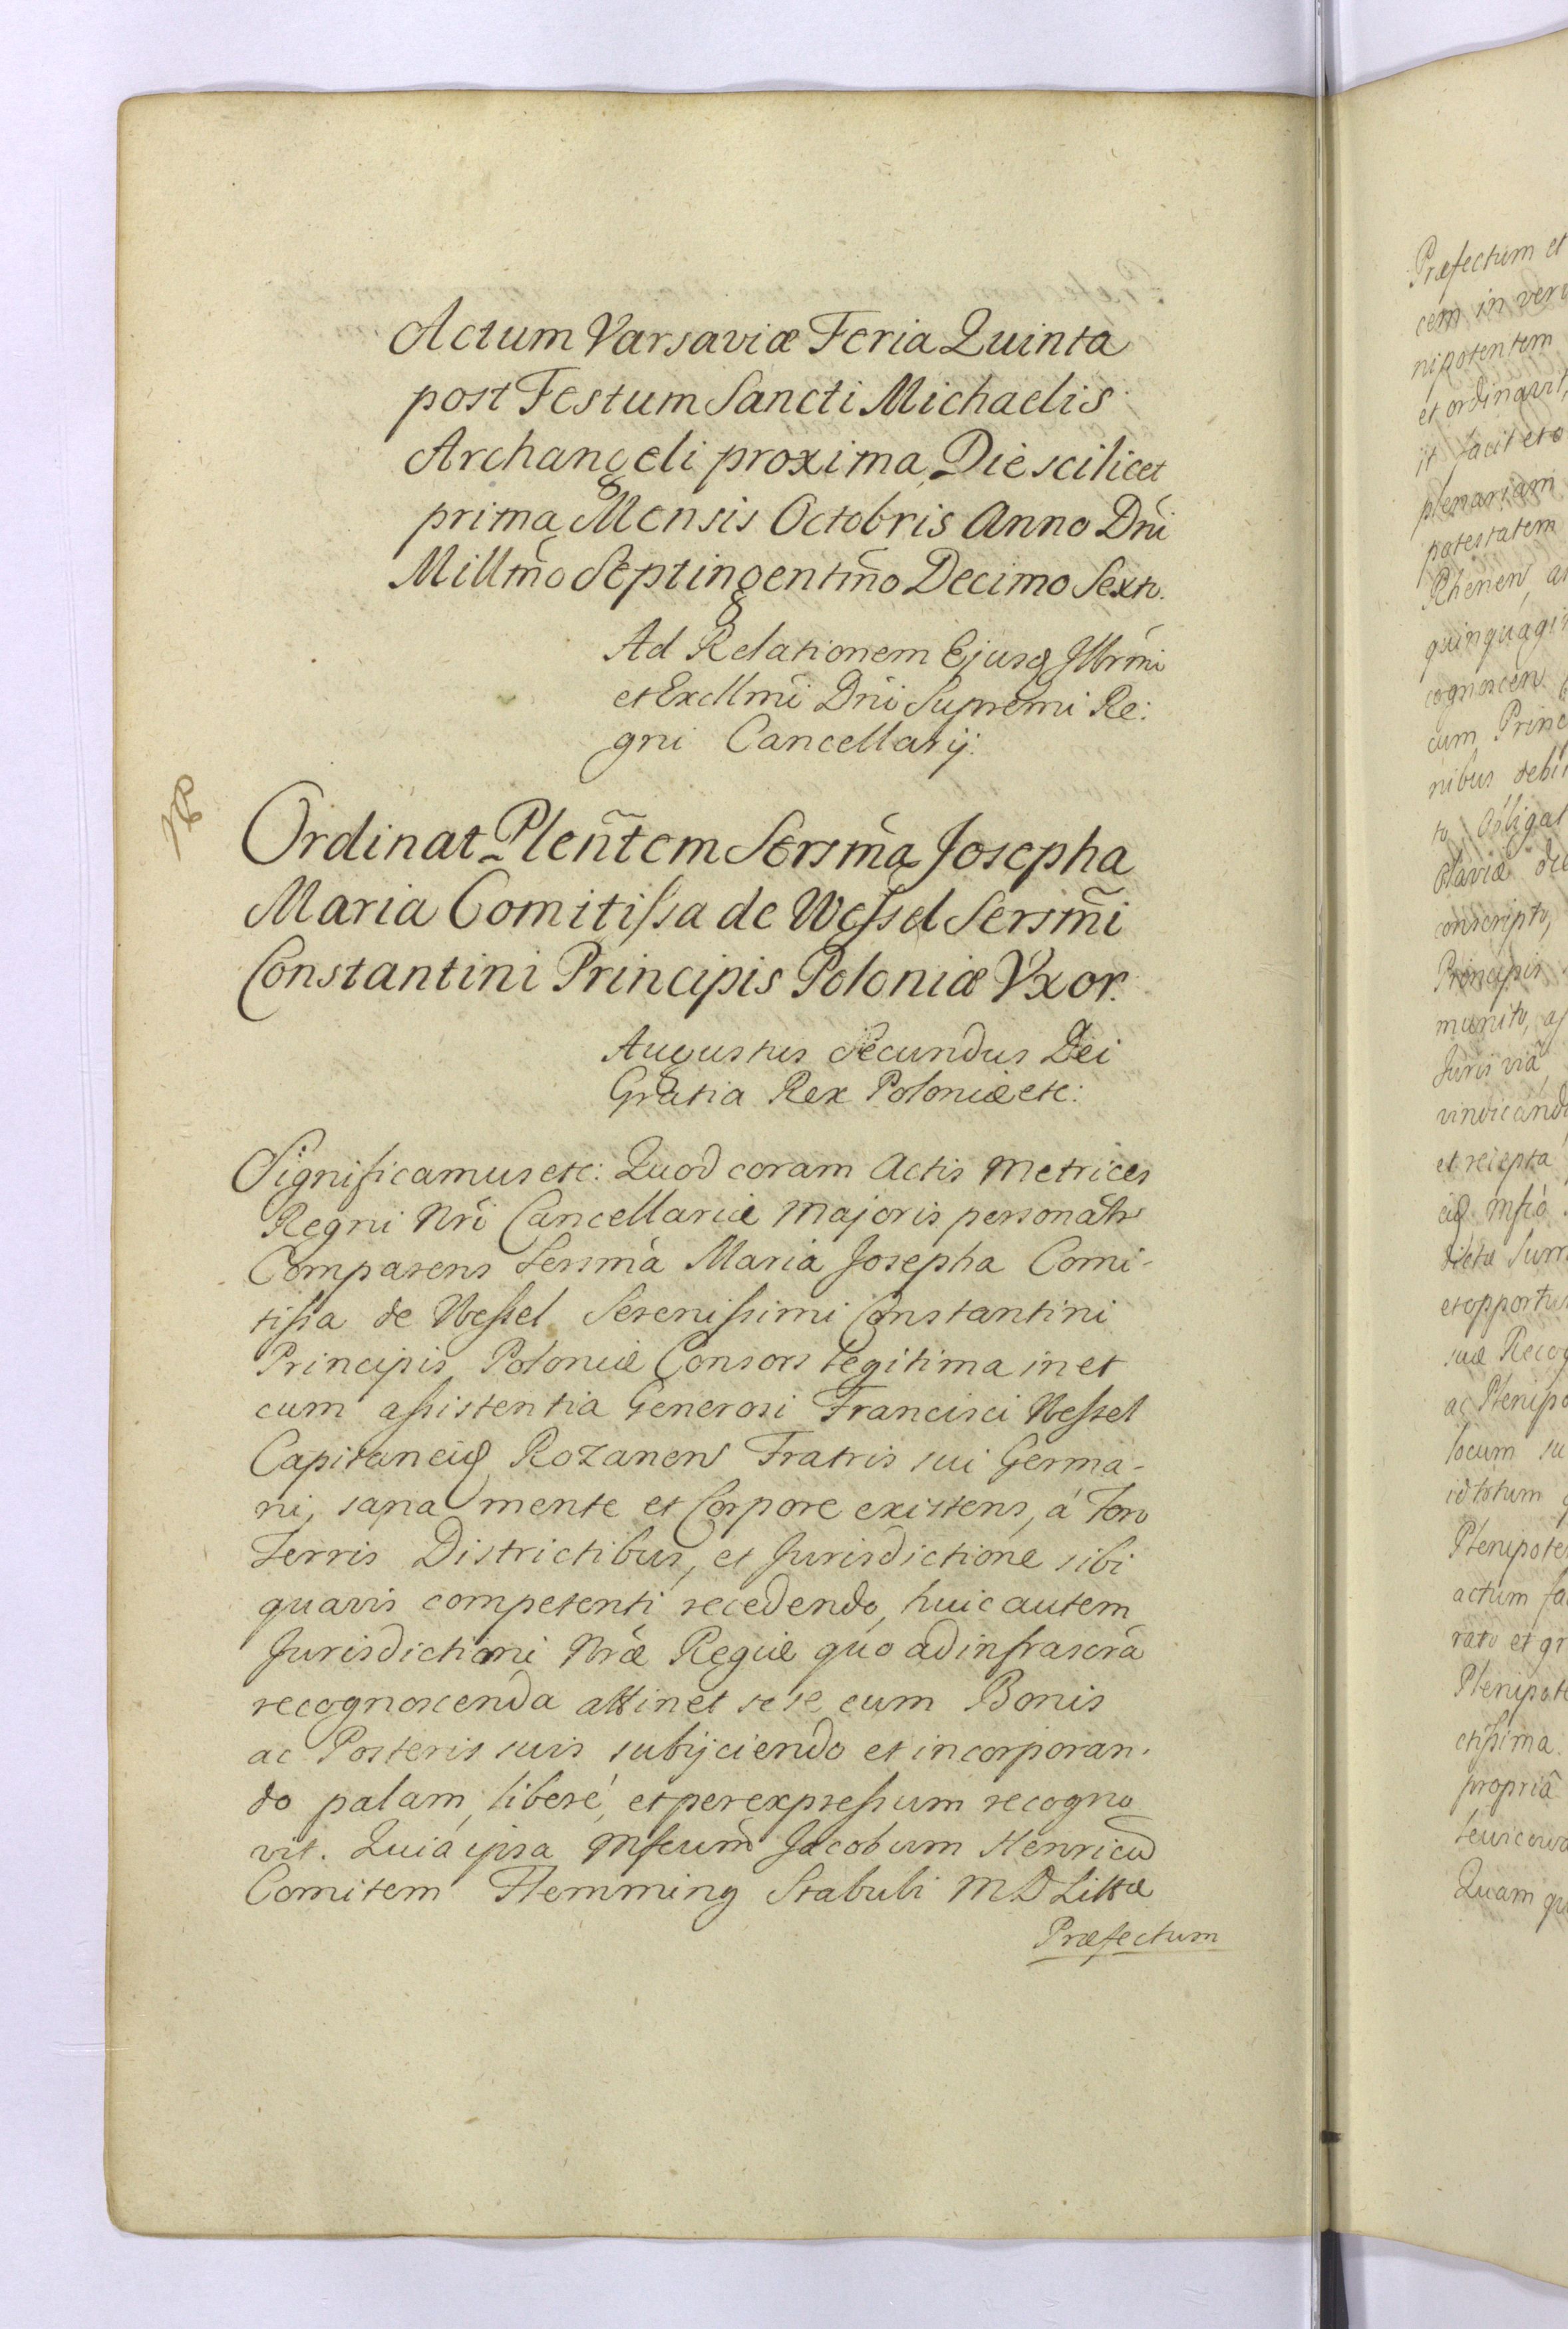 Actum Varsaviæ Feria Quinta
post Festum Sancti Michaelis
Archangeli proxima, Die scilicet
prima Mensis Octobris Anno Dñi
Millm̃o Septingentm̃o Decimo Sexto.
Ad Relationem Ejusq Jllr̃mi
et Excllm̃i Dñi Supremi Re:
gni Cancellarij.
Ordinat Pleñtem Sersm̃a Josepha
Maria Comitißa de Weßel Sersm̃i
Constantini Principis Poloniæ Vxor.
Augustus Secundus Dei
Gratia Rex Poloniæ etc:
Significamus etc: Quod coram Actis Metrices
Regni Nr̃i Cancellariæ Majoris personalr̃
Comparens Sersm̃a Maria Josepha Comi-
tißa de Weßel Serenißimi Constantini
Principis Poloniæ Consors legitima in et
cum aßistentia Generosi Francisci Weßel
Capitanei Rozanen Fratris sui Germa-
ni, sana mente et Corpore existens, á Foro
Terris Districtibus, et Jurisdictione sibi
quavis competenti recedendo, huic autem
Jurisdictioni Nr̃æ Regiæ quó ad infrascr̃a
recognoscenda attinet sese cum Bonis
ac Posteris suis subijciendo et incorporan-
do palam, liberé, et per expreßum recogno
vit. Quiá ipsa Mfcum̃ Jacobum Henricu͂
Comitem Flemming Stabuli M D Littæ
Præfectum
Præfectum et
cem in ver
nipotentem
et ordinavit,
it facit et o
plenariam
potestatem
Rhenen, a
quinquagi
cognoscen
cum Princ
nibus debi
to, Obligat
slaviæ die
conscripto,
Principis
munito, a
Juris via
vindicand
et recepta
dicta Sum
et opportu
suæ Recog
ac Plenipo
locum su
id totum
Plenipote
actum fa
rato et gr
Plenipote
ctißima.
propriâ
Quam qu